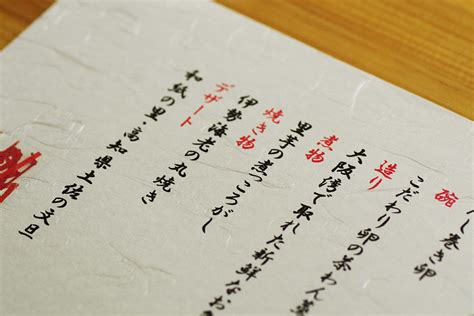 し巻き卵
碗
こだわり卵の茶わん蒸
造り
大阪湾で取れた新鮮なお
煮物
里芋の煮っころがし
焼き物
伊勢海老の丸焼き
デザート
和紙の里 高知県土佐の文旦